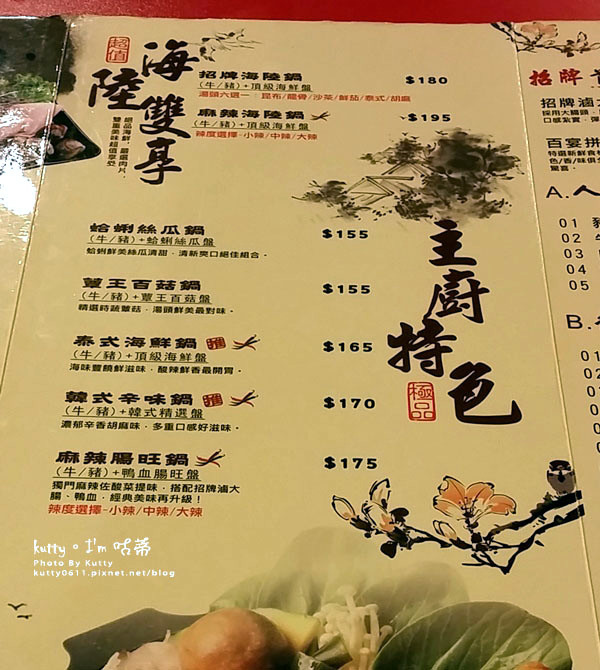 超值
海陸雙享
絕佳海鮮,嚴選肉片,
雙重美味超值享受。
招牌海陸鍋 $180
(牛/豬)+頂級海鮮盤
湯頭六選一:昆布/龍骨/沙茶/鮮茄/泰式/胡麻
麻辣海陸鍋 $195
(牛/豬)+頂級海鮮盤
辣度選擇-小辣/中辣/大辣
主廚特色
極品
蛤蜊絲瓜鍋 $155
(牛/豬)+蛤蜊絲瓜盤
蛤蜊鮮美絲瓜清甜,清新爽口絕佳組合。
蕈王百菇鍋 $155
(牛/豬)+蕈王百菇盤
精選時蔬蕈菇,湯頭鮮美最對味。
泰式海鮮鍋 推 $165
(牛/豬)+頂級海鮮盤
海味豐饒鮮滋味,酸辣鮮香最開胃。
韓式辛味鍋 推 $170
(牛/豬)+韓式精選盤
濃郁辛香胡麻味,多重口感好滋味。
麻辣腸旺鍋 $175
(牛/豬)+鴨血腸旺盤
獨門麻辣佐酸菜提味,搭配招牌滷大
腸、鴨血,經典美味再升級!
辣度選擇-小辣/中辣/大辣
招牌
招牌滷
採用大腸頭
口感紮實
百宴拼
特選新鮮食
色/香/味俱
驚喜。
A.人
01 豬
02 牛
03
04
05
B.
01
02
01
02
01
kutty。I'm 咕蒂
Photo By Kutty
kutty0611.pixnet.net/blog